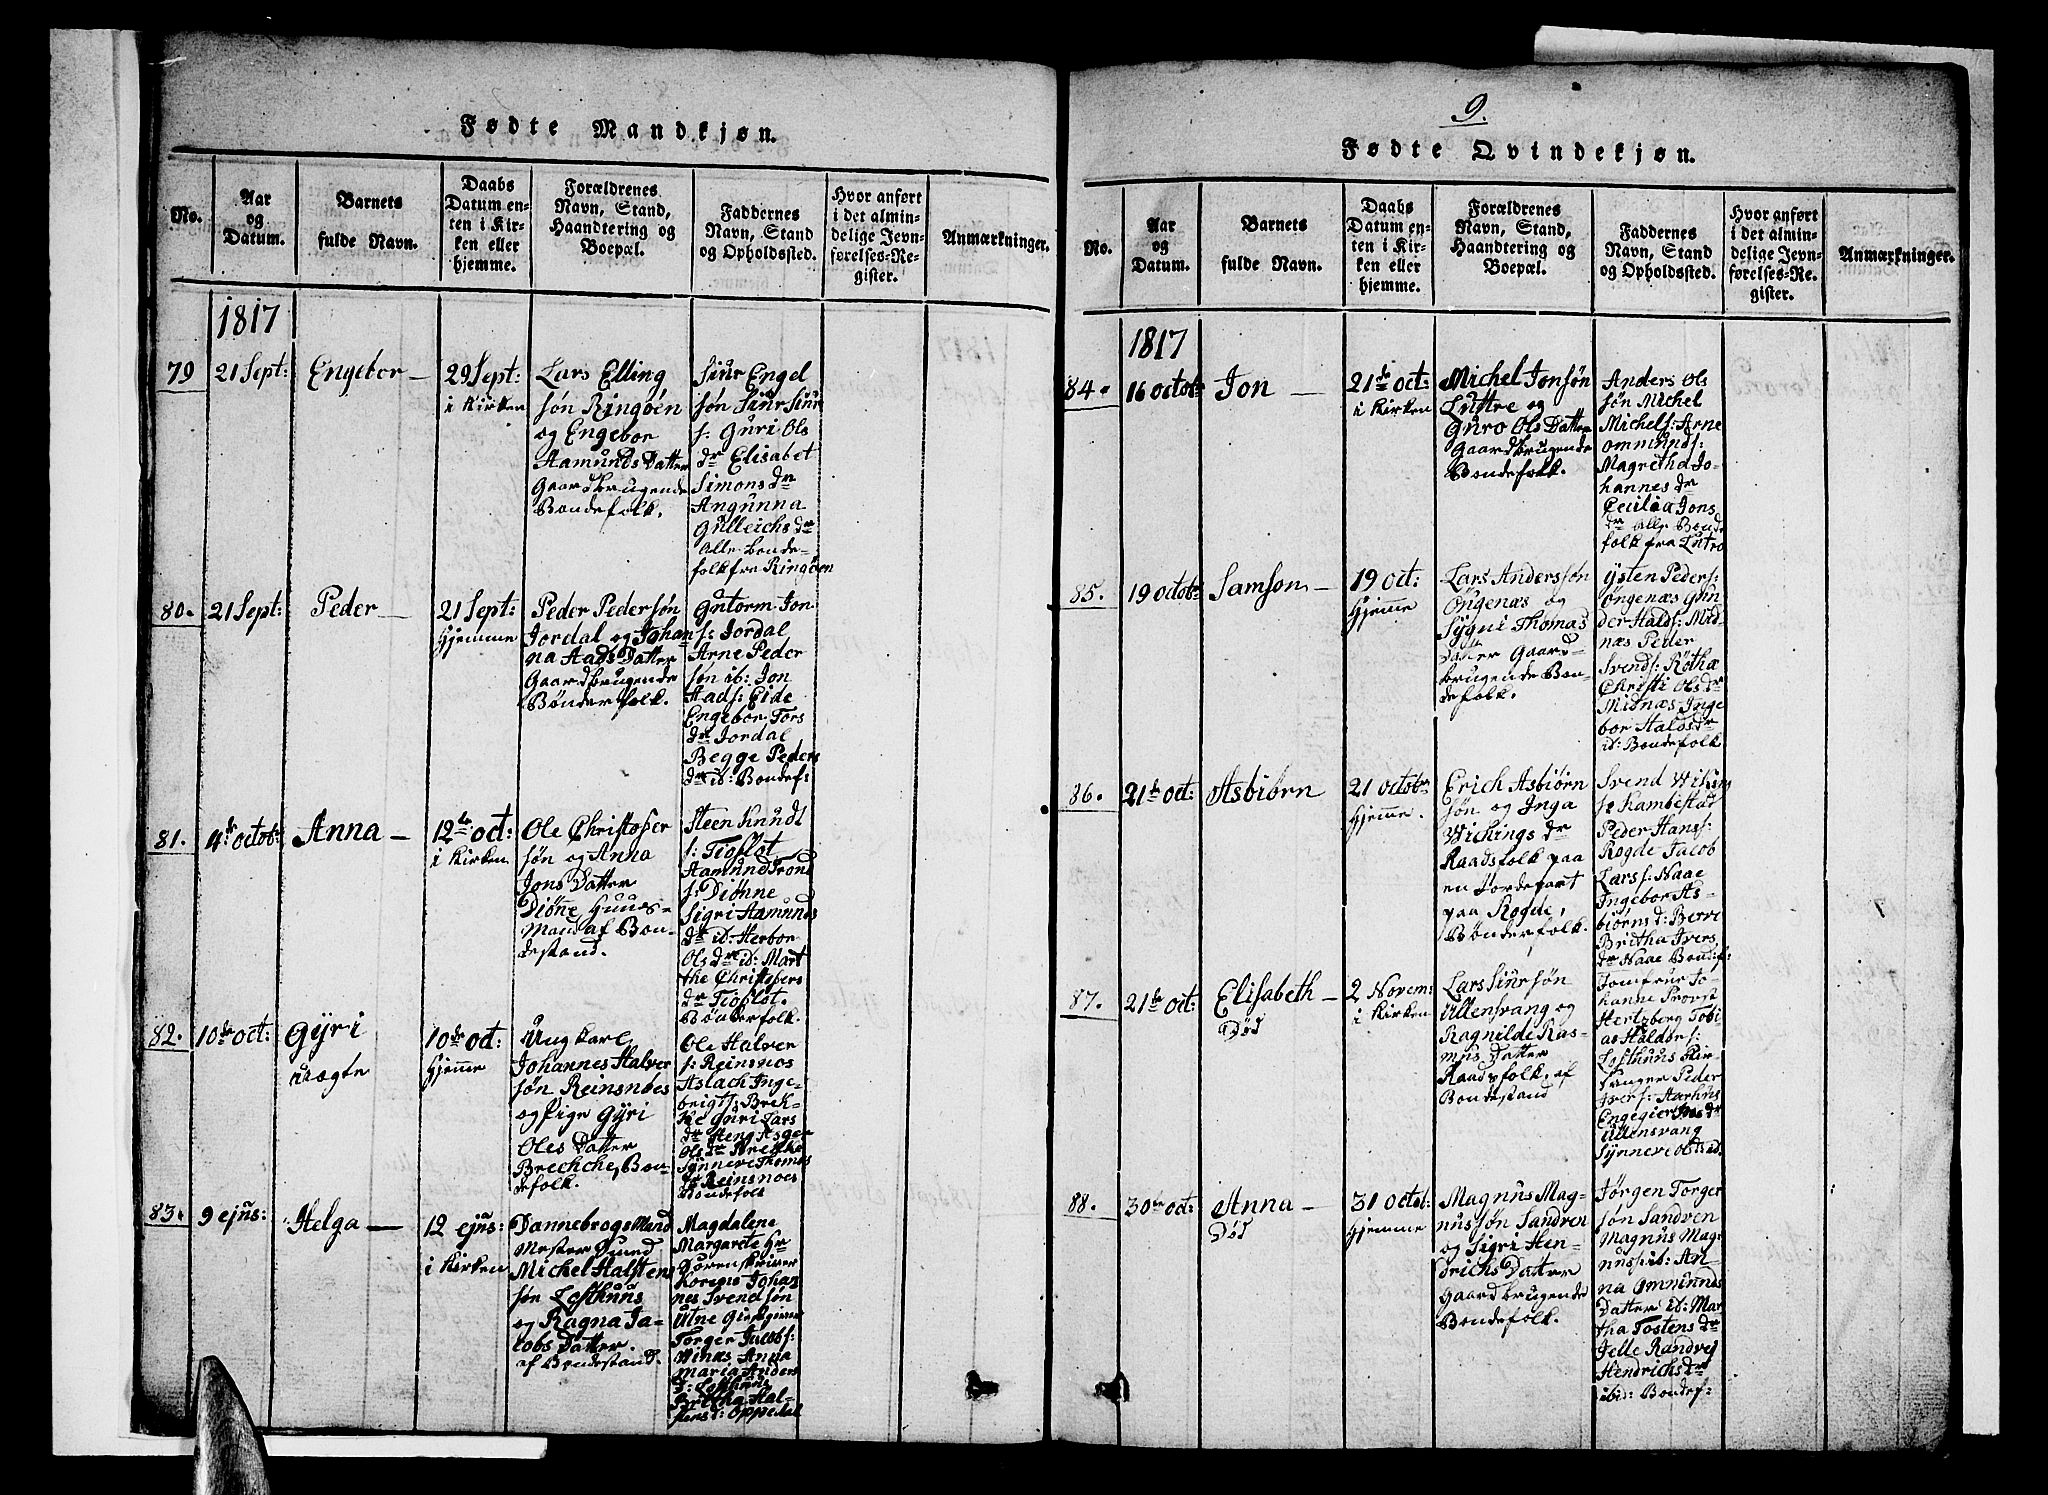 Fødte Mandkjøn.
No.
Aar
og
Datum.
Barnets
fulde Navn.
Daabs
Datum en-
ten i Kir-
ken eller
hjemme.
Forældrenes
Navn, Stand,
Haandtering og
Boepæl.
Faddernes
Navn, Stand
og Opholdssted.
Hvor anført
i det almin-
delige Jevn-
førelses-Re-
gister.
Anmærkninger.
1817
79
21 Sept:
Engebor
29 Sept:
i Kirken
Lars Elling
søn Ringøen
og Engebor
Aamunds Datter
Gaardbrugende
Bondefolk.
Siur Engel
søn Siur Siur
s: Guri Ols
dr Elisabet
Simons dr
Angunna
Gulleichs dr
Alle bonde-
folk fra Ringøen
80.
21 Sept:
Peder
21 Sept:
Hjemme
Peder Pedersøn
Jordal og Johan
na Aads Datter
Gaardbrugende
Bønderfolk.
Gutorm Jon
s: Jordal
Arne Peder
søn ib: Jon
Aads: Eide
Engebor Tors
dr Jordal
Begge Peders
dr ib: Bondef:
81.
4de octob:
Anna
12te oct:
i Kirken
Ole Christofer
søn og Anna
Jons Datter
Diønne Huus-
Mand af Bon-
destand.
Steen Knudt
s: Tioflot
Aamund Trond
s: Diønne
Sigri Aamunds
dr ib: Herbor
Ols dr id: Mart
the Christofers
dr Tioflot.
Bønderfolk.
82.
10de oct:
Gÿri
uægte
10de oct:
Hjemme
Ungkarl
Johannes Halver
søn Reinsnoes
og Pige Gÿri
Oles Datter
Brechche, Bon-
defolk.
Ole Halver
s: Reinsnos
Aslach Inge-
brigt s: Brek-
ke Guri Lars
dr
Ols dr Brekke
Sÿnneve Thomas
dr Reinsnoes
Bondefolk
83.
9 ejus:
Helga
12 ejus:
i Kirken
Dannebrogs Mand
Mester Smed
Michel Halsten
søn Lofthuus
og Ragna Ja-
cobs Datter.
af Bondestand.
Magdalene
Margarete Hr
Sorenskriver
Koren Johan
nes Svendsøn
Utne Giestgiver
Torger Jacobs:
Winæs Anna
Maria Anders
d: Lofthuus
Britha Hal-
stens d: Oppedal
9.
Fødte Qvindekjøn.
No.
Aar
og
Datum.
Barnets
fulde Navn.
Daabs
Datum en-
ten i Kir-
ken eller
hjemme.
Forældrenes
Navn, Stand,
Haandtering og
Boepæl.
Faddernes
Navn, Stand
og Opholdssted.
Hvor anført
i det almin-
delige Jevn-
førelses-Re-
gister.
Anmærkninger.
1817
84.
16 octob:
Jon
21de oct:
i Kirken
Michel Jonsøn
Luttre og
Guro Ols Datter
Gaardbrugende
Bondefolk.
Anders Ols
søn Michel
Michels: Arne
ommunds:
Magretha Jo-
hannes dr
Cecilia Jons
dr alle Bonde
folk fra Lutro
85.
19 octob:
Samson
19 oct:
Hjemme
Lars Anderssøn
Øugenæs og
Sÿgni Thomas
Datter Gaard-
brugende Bon-
defolk.
ÿsten Peders:
Øngenæs Gun
der Halds: Mid-
næs Peder
Svends: Røthæ
Christi Ols dr
Midnæs Inge
bor Halds dr
id: Bondefolk
86.
21de oct:
Asbiørn
21 octobr
Hjemme.
Erich Asbiørn
søn og Inga
Wichings dr
Raadsfolk paa
en Jordepart
paa Rogde,
Bønderfolk.
Svend Wiking
s: Kambestad
Peder Hans s:
Rogde Jacob
Lars s: Naae
Ingebor As-
biørns d: Berve
Britha Ivers
dr Naae Bondef:
87.
21de oct:
Elisabeth
Død
2 Novem:
i Kirken
Lars Siursøn
Ullensvang og
Ragnilde Ras-
mus Datter
Raadsfolk. af
Bondestand
Jomfrue Jo-
hanne Provst
Hertzberg Tobi-
as Haldor s:
Lofthuus Kir-
sanger Peder
Iver s: Aarhus
dr
Ullensvang
Sÿnneve Ols d: id.
88.
30te oct:
Anna
Død
31 octob:
Hjemme
Magnus Mag-
nussøn Sandven
og Sigri Hen-
drichs Datter
Gaardbrugende
Bondefolk.
Jørgen Torger
søn Sandven
Magnus Mag
nus s: ib: An-
na Ommunds
Datter ib: Mar
tha Tostens dr
Jelle Randvej
Hendrichs dr
ibid: Bondef: